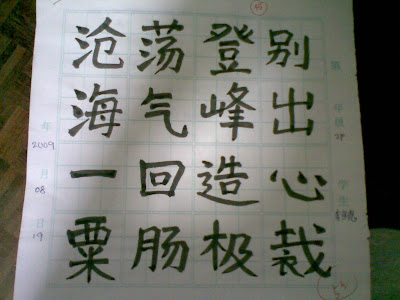 第 年级
学生
别出心裁
登峰造极
荡气回肠
沧海一粟
年 2009
月 08
日 19